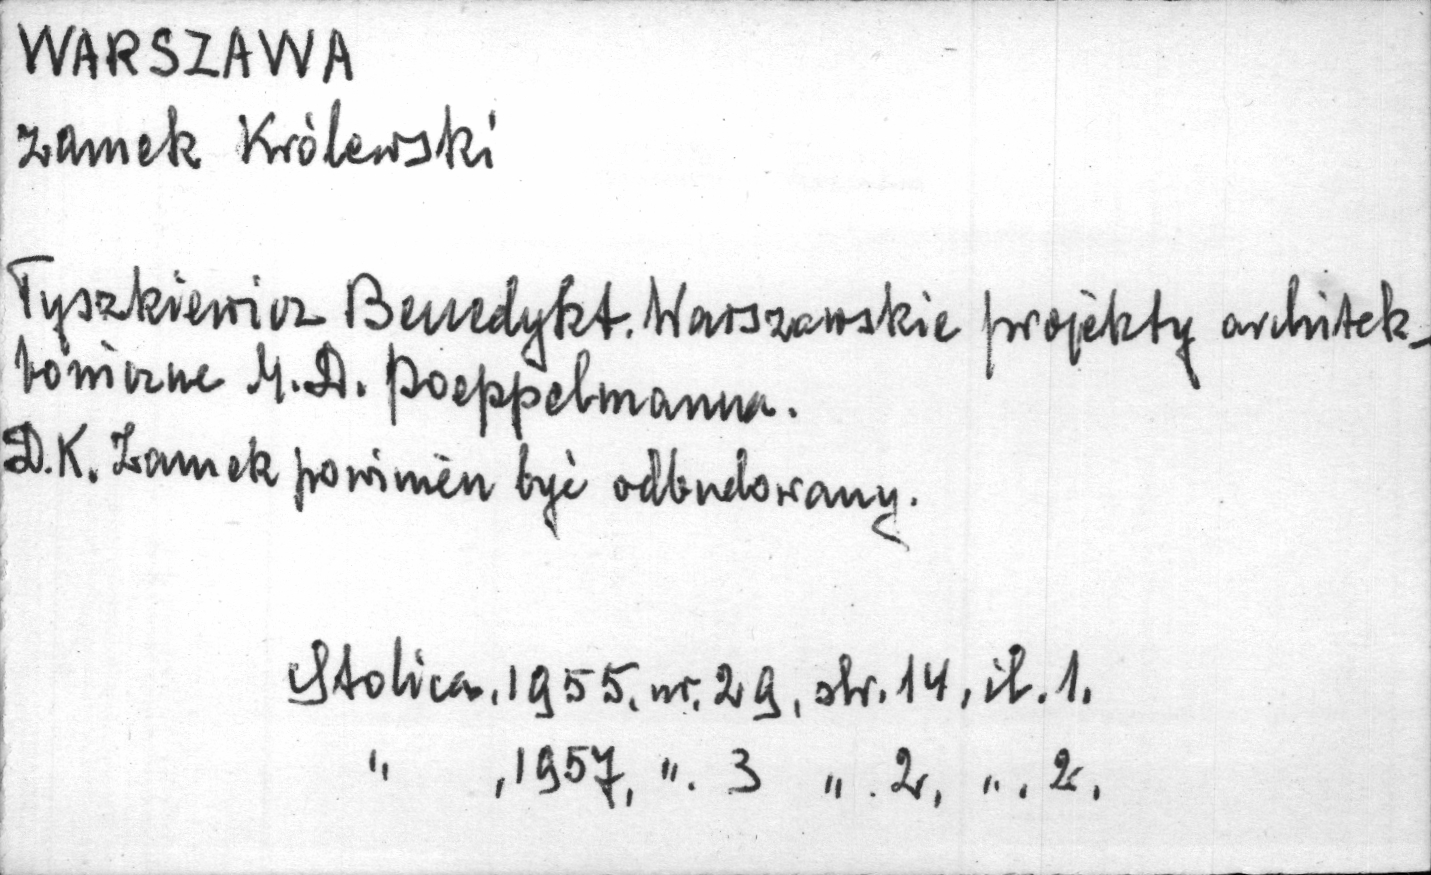 WARSZAWA
Zamek Królewski
Tyszkiewicz Benedykt. Warszawskie projekty architek-
toniczne M.D. Poeppelmanna.
D.K. Zamek powinien być odbudowany.
Stolica, 1955, nr. 29, str. 14, il. 1.
" , 1957, ". 3 " . 2, " . 2.